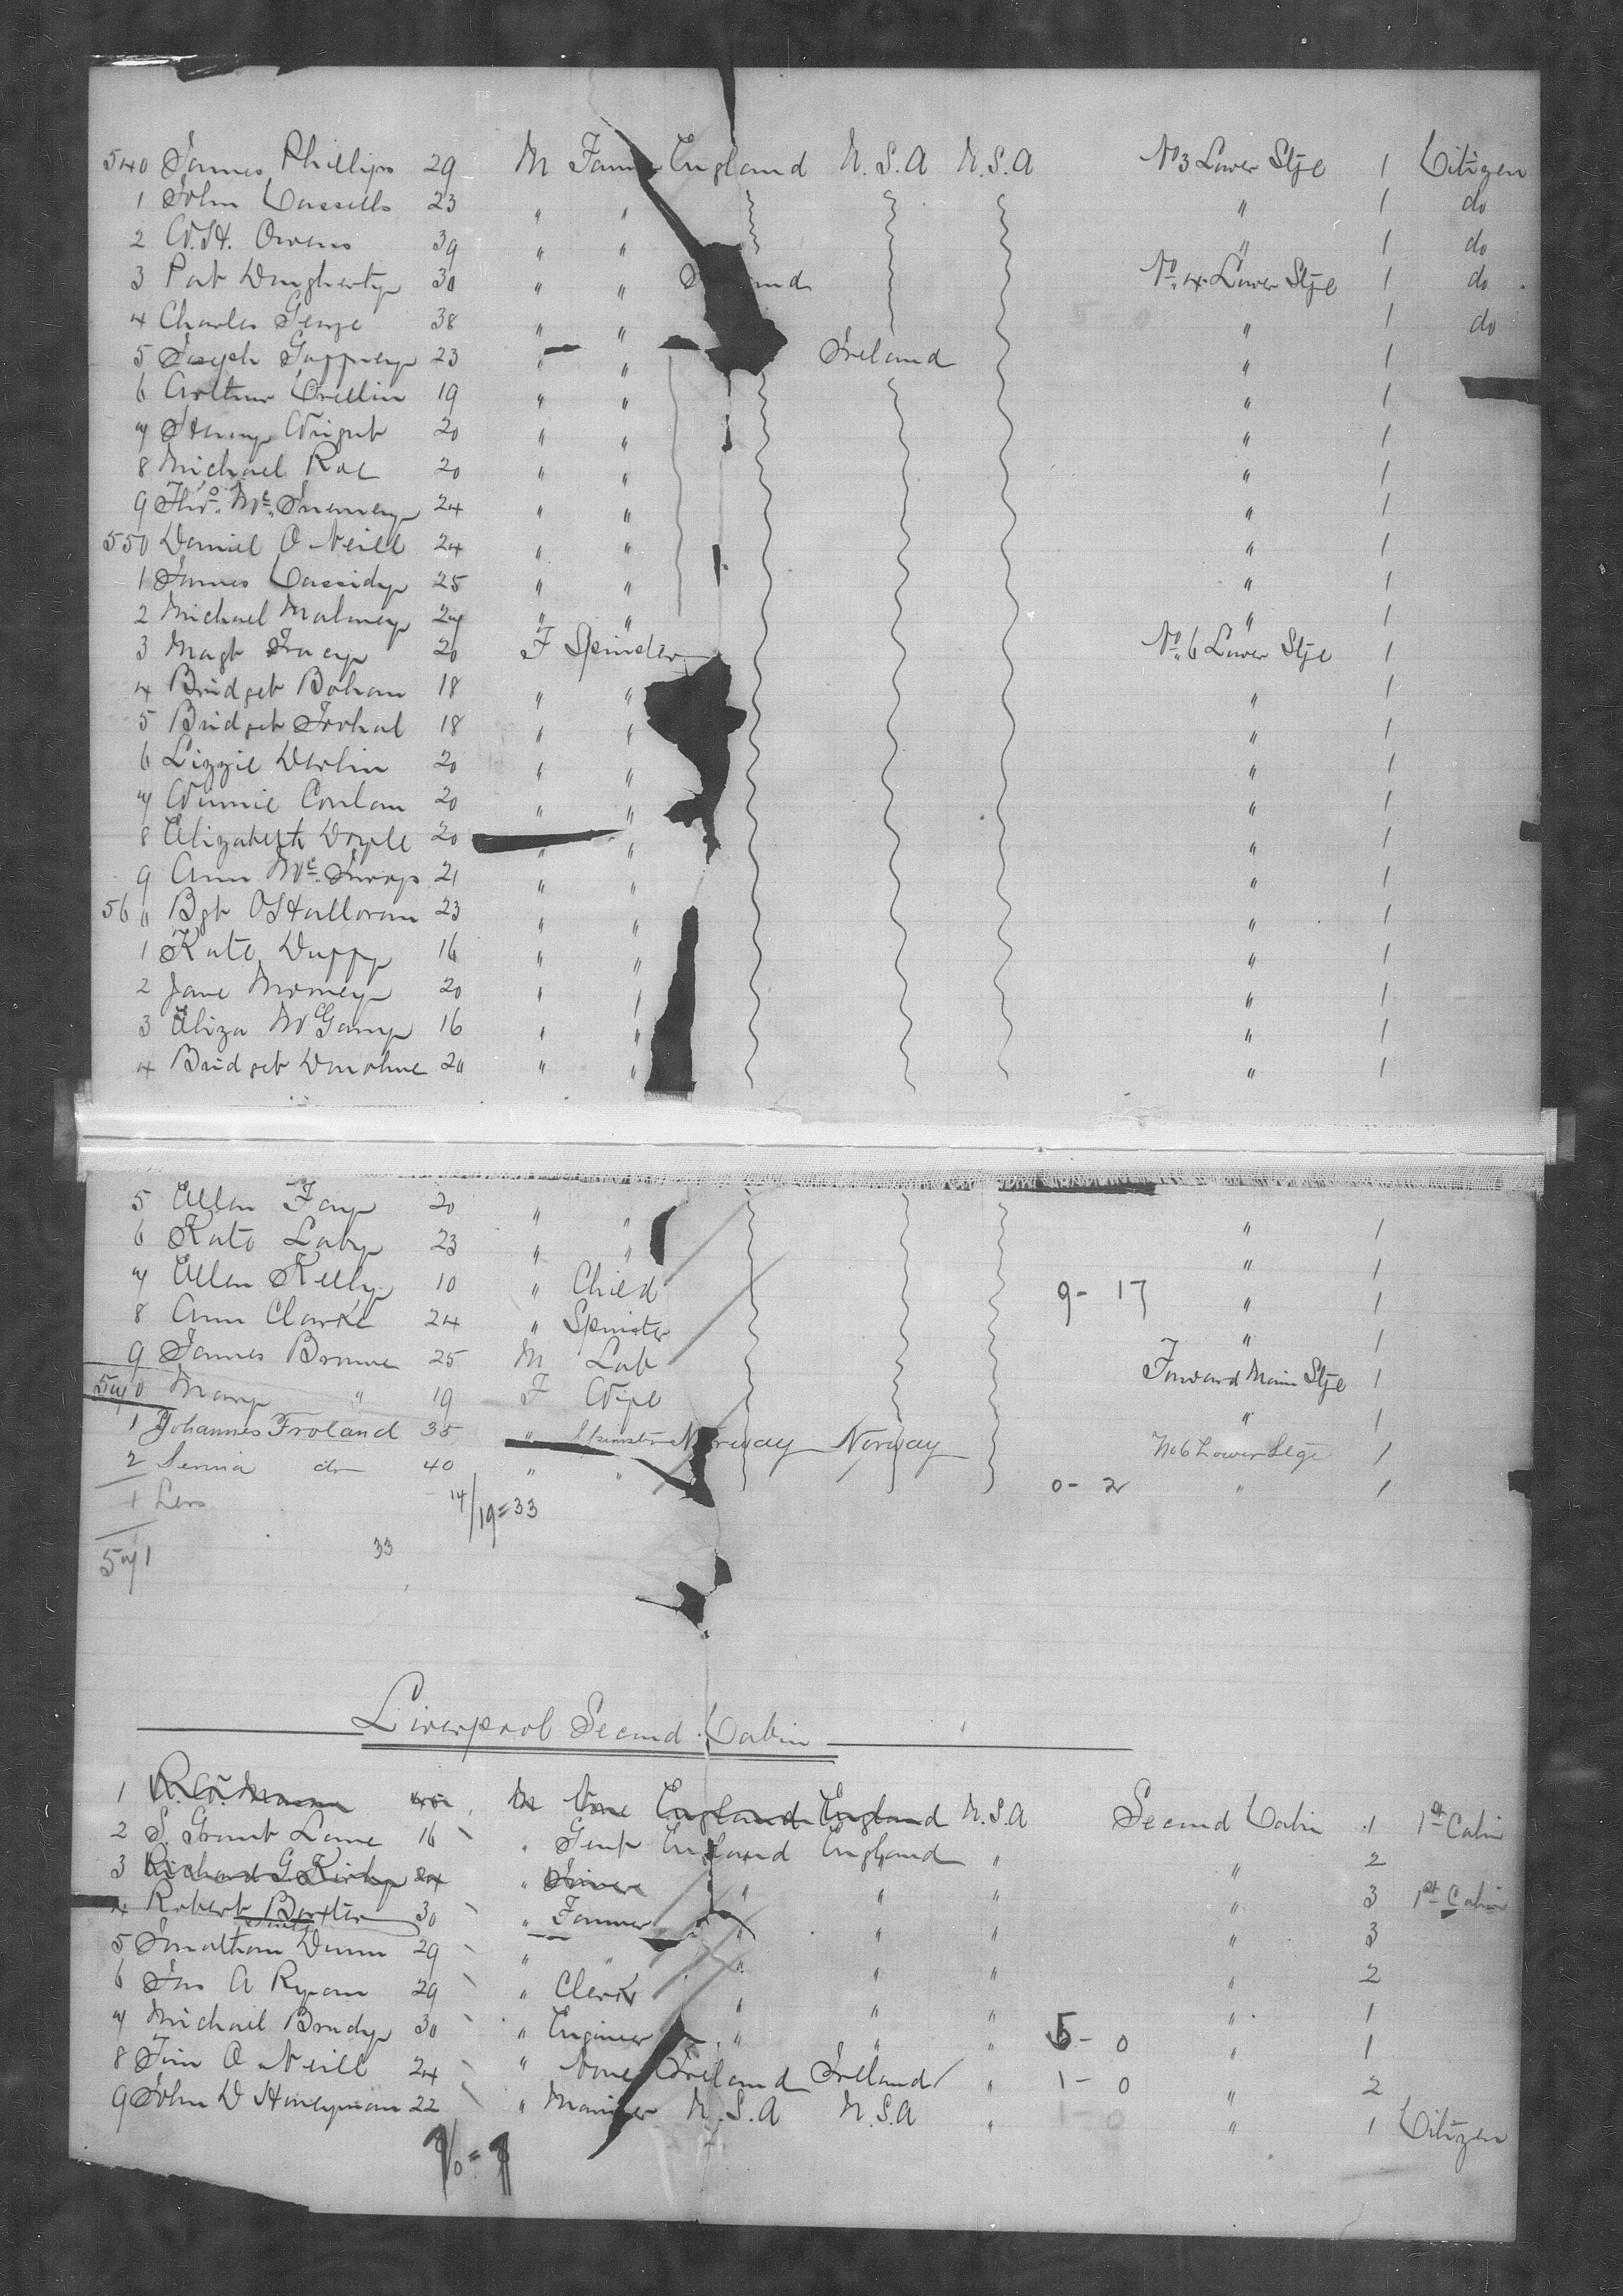 540 James Phillips 29 M Farmer England U.S.A U.S.A No 3 Lower Stge 1 Citizen
1 John Cassells 23 " " " 1 do
2 W.H. Owens 39 " " " 1 do
3 Pat Dougherty 30 " " No 4 Lower Stge 1 do
4 Charles George 38 " " " 1 do
5 Joseph Gaffney 23 " " Ireland " 1
6 Arthur Crellin 19 " " " 1
7 Henry Wright 20 " " " 1
8 Michael Roe 20 " " " 1
9 Thos. Mc 24 " " " 1
550 Daniel O Neill 24 " " " 1
1 James Cassidy 25 " " " 1
2 Michael Maloney 27 " " " 1
3 Magt Tracey 20 F Spinster No 6 Lower Stge 1
4 Bridget Bohan 18 " " " 1
5 Bridget 18 " " " 1
6 Lizzie Devlin 20 " " " 1
7 Winnie Conlan 20 " " " 1
8 Elizabeth Doyle 20 " " " 1
9 Ann Mc 21 " " " 1
560 Bgt O'Halloran 23 " " " 1
1 Kate Duffy 16 " " " 1
2 Jane 20 " " " 1
3 Eliza McGamy 16 " " " 1
4 Bridget Donohue 20 " " " 1
5 Ellen Fay 20 " " " 1
6 Kate Laby 23 " " " 1
7 Ellen Kelly 10 " Child 9 - 17 " 1
8 Ann Clarke 24 " Spinster " 1
9 James Browne 25 M Lab Forward Main Stge 1
570 Mary " 19 F Wife " 1
1 Johannes Froland 35 " Spinster Norway Norway No 6 Lower Stge 1
2 Serina do 40 " " 0 - 2 " 1
1 Less 14/19=33
571 33
Liverpool Second Cabin
1 R.W. Mason 45 M None England England U.S.A Second Cabin 1 1st Cabin
2 S. Grant Lane 16 " Gent England England " " 2
3 Richard G. Kirby 24 " " " " " 3 1st Cabin
4 Robert Baxter 30 " Farmer " " " " 3
5 Jonathan Dunn 29 " " " " " " 2
6 Jas A Ryan 29 " Clerk " " " " 1
7 Michael Brady 30 " Engineer " " " 5 - 0 " 1
8 Jim O Neill 24 " None Ireland Ireland " 1 - 0 " 2
9 John D Honeyman 22 " Mariner U.S.A U.S.A " 1 - 0 " 1 Citizen